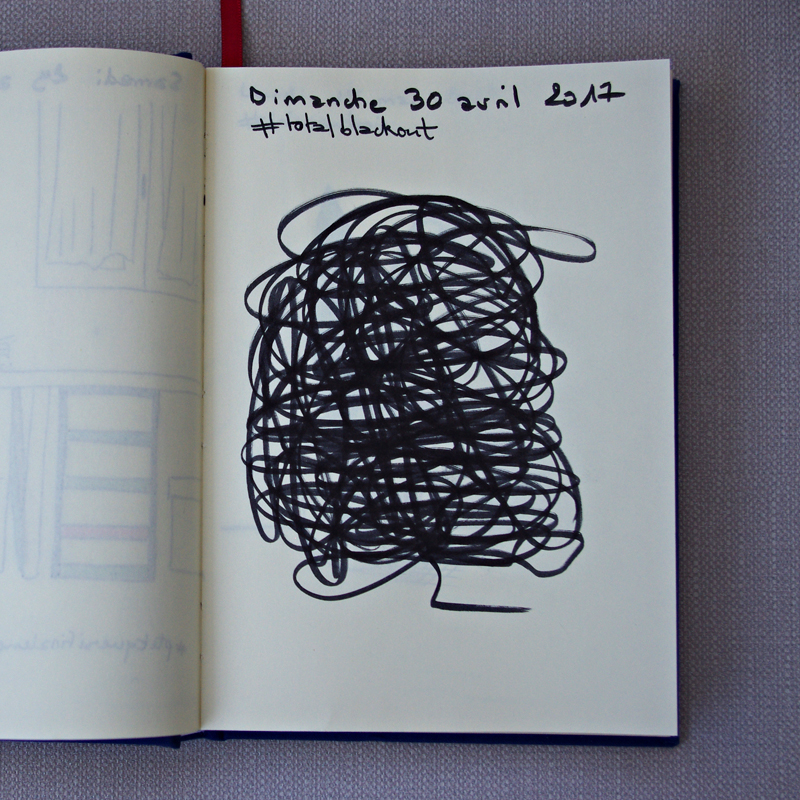 Samedi 29 a
Dimanche 30 avril 2017
#totalblackout